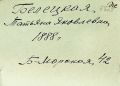 Белецкая,
Татьяна Яковлевна,
1888 г.
Б. Морская, 1/2